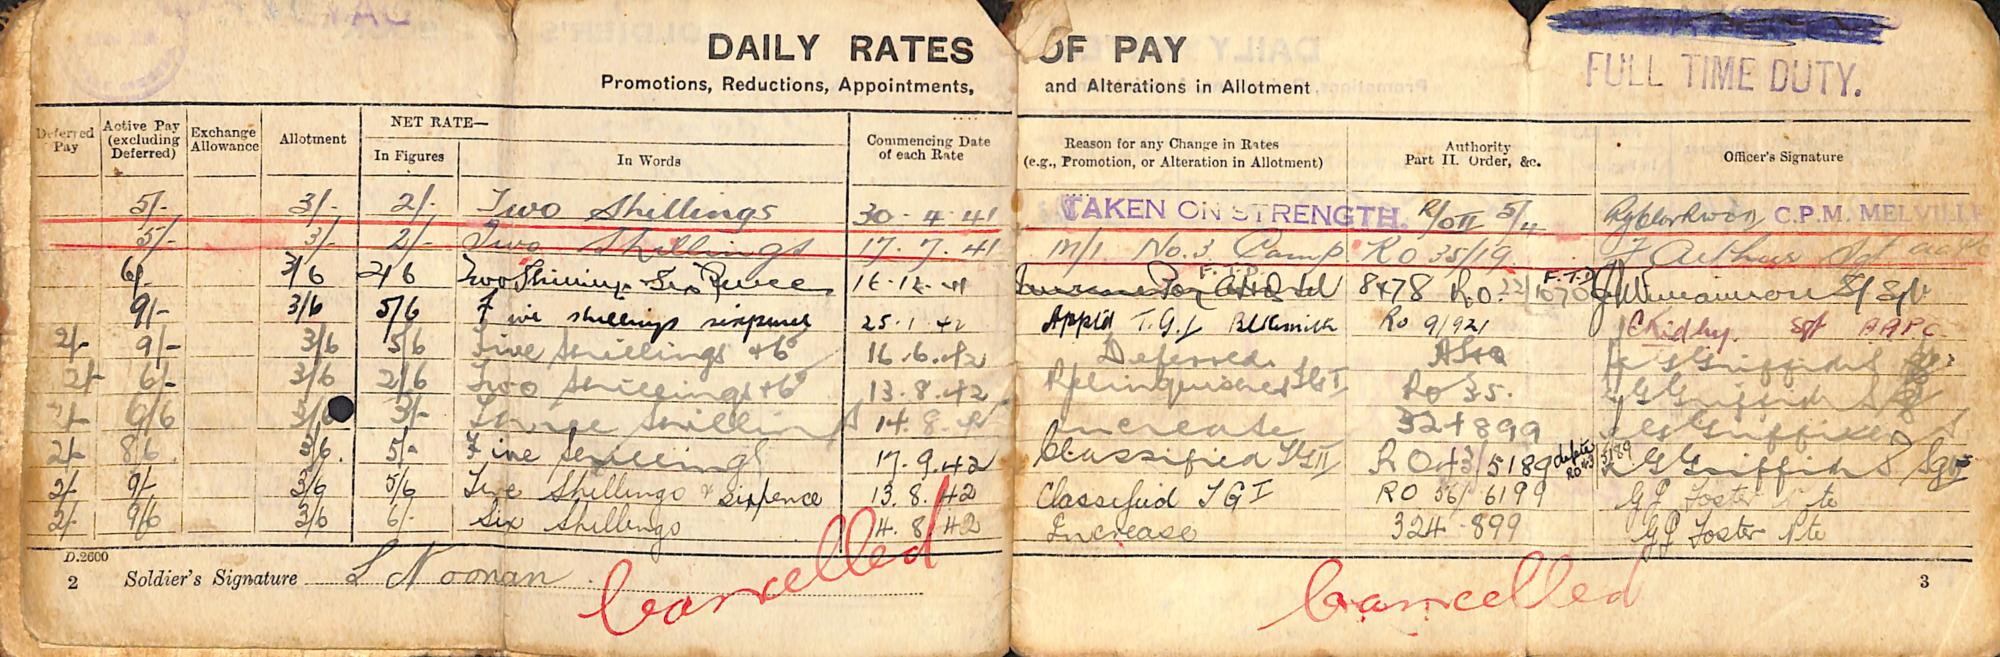 DAILY RATES OF PAY
Promotions, Reductions, Appointments, and Alterations in Allotment
FULL TIME DUTY.
Deferred Pay Active Pay (excluding Deferred) Exchange Allowance Allotment NET RATE— In Figures In Words Commencing Date of each Rate Reason for any Change in Rates (e.g., Promotion, or Alteration in Allotment) Authority Part II. Order, &c. Officer's Signature
5/- 3/- 2/- Two Shillings 30-4-41 TAKEN ON STRENGTH. R/O II 5/4 C.P.M. MELVILLE
5/- 3/- 2/- Two Shillings 17.7.41 M/I No.3 Camp RO 35/19 F Arthur
6/- 3/6 2/6 Two Shillings Six Pence 16.12.41 F.T.D. 8478 R.O. 22/1070 F.T.D
9/- 3/6 5/6 Five shillings sixpence 25.1.42 App'd T.G.I Blksmith Ro 9/921 Ridley Sgt AAPC
2/- 9/- 3/6 5/6 Five Shillings + 6d 16.6.42 Deferred G Griffiths
2/- 6/- 3/6 2/6 Two Shillings + 6d 13.8.42 Relinquished TGI Ro 35. G Griffiths
2/- 6/6 3/6 3/- Three Shillings 14.8.42 Increase 324899 G Griffiths
2/- 8/6 3/6. 5/- Five Shillings 17.9.42 Classified TGII R O 43/5189 delete RO 43/5189 G Griffiths Sgt
2/- 9/- 3/6 5/6 Five Shillings & Sixpence 13.8.42 Classified TGI RO 56/6199 GJ Foster Pte
2/- 9/6 3/6 6/- Six Shillings 14.8.42 Increase 324-899 GJ Foster Pte
D.2600
2 Soldier's Signature L Noonan Cancelled Cancelled 3